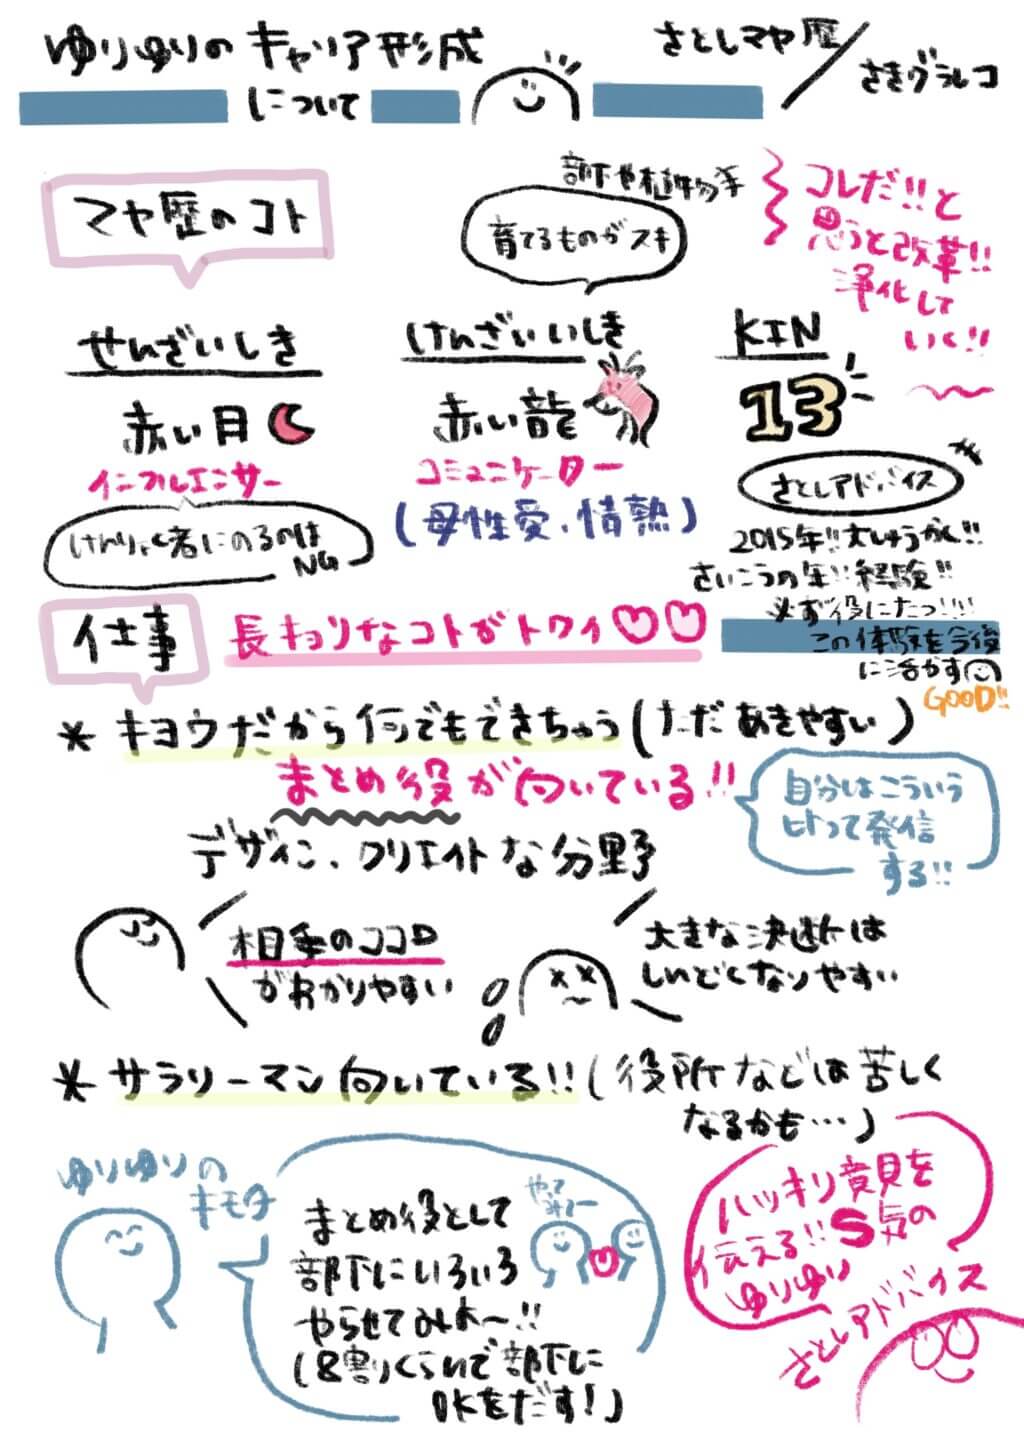 ゆりゆりのキャリア形成
について
さとしマヤ歴/
さきグラレコ
マヤ歴のコト
部下や植物等
育てるものがスキ
コレだ!!と
思うと改革!!
浄化して
いく!!
せんざいしき
赤い月
インフルエンサー
けんりょく者にのるのは
NG
けんざいいしき
赤い龍
コミュニケーター
(母性愛、情熱)
KIN
13
さとしアドバイス
2015年!!大しゅうかく!!
さいこうの年!!経験!!
必ず役にたつ!!!
この体験を今後
に活かす
GOOD!!
仕事
長キョリなコトがトクイ
* キヨウだから何でもできちゃう(ただあきやすい)
まとめ役が向いている!!
自分はこういう
ヒトって発信
する!!
デザイン、クリエイトな分野
相手のココロ
がわかりやすい
大きな決断は
しんどくなりやすい
* サラリーマン向いている!!(役所などは苦しく
なるかも…)
ゆりゆりの
キモチ
まとめ役として
部下にいろいろ
やらせてみよ〜!!
(8割くらいで部下に
OKをだす!)
やって
みてー
ハッキリ意見を
伝える!!S気の
ゆりゆり
さとしアドバイス